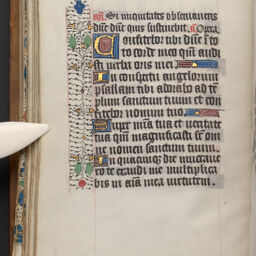 añ. Si iniquitates observaueris
dñe dñe quis sustinebit. Opera.
Confitebor tibi dñe in to
to corde meo qm̄ audi
sti uerba oris mei
In conspectu angelorum
psallam tibi adorabo ad tē
plum sanctum tuum et con
fitebor nomini tuo
Super mīa tua et ueritate
tua qm̄ magnificasti s̄ om
ne nomen sanctum tuum.
In quacumqz die inuocaue
ro te exaudi me multiplica
bis in aīa mea uirtutem.